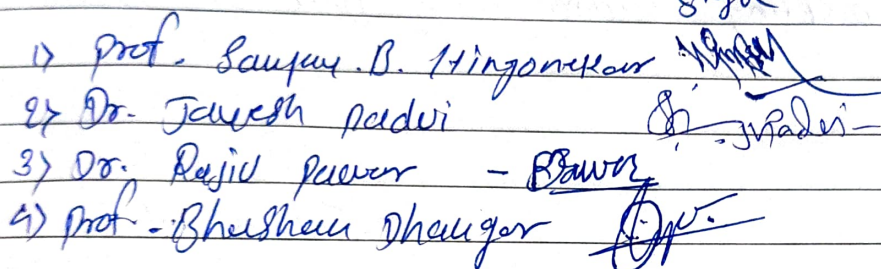 1) Prof. Sanjay .B. Hingonekar
2) Dr. Jayesh Padvi JVPadvi
3) Dr. Rajiv Pawar - Pawar
4) Prof. Bhushan Dhangar